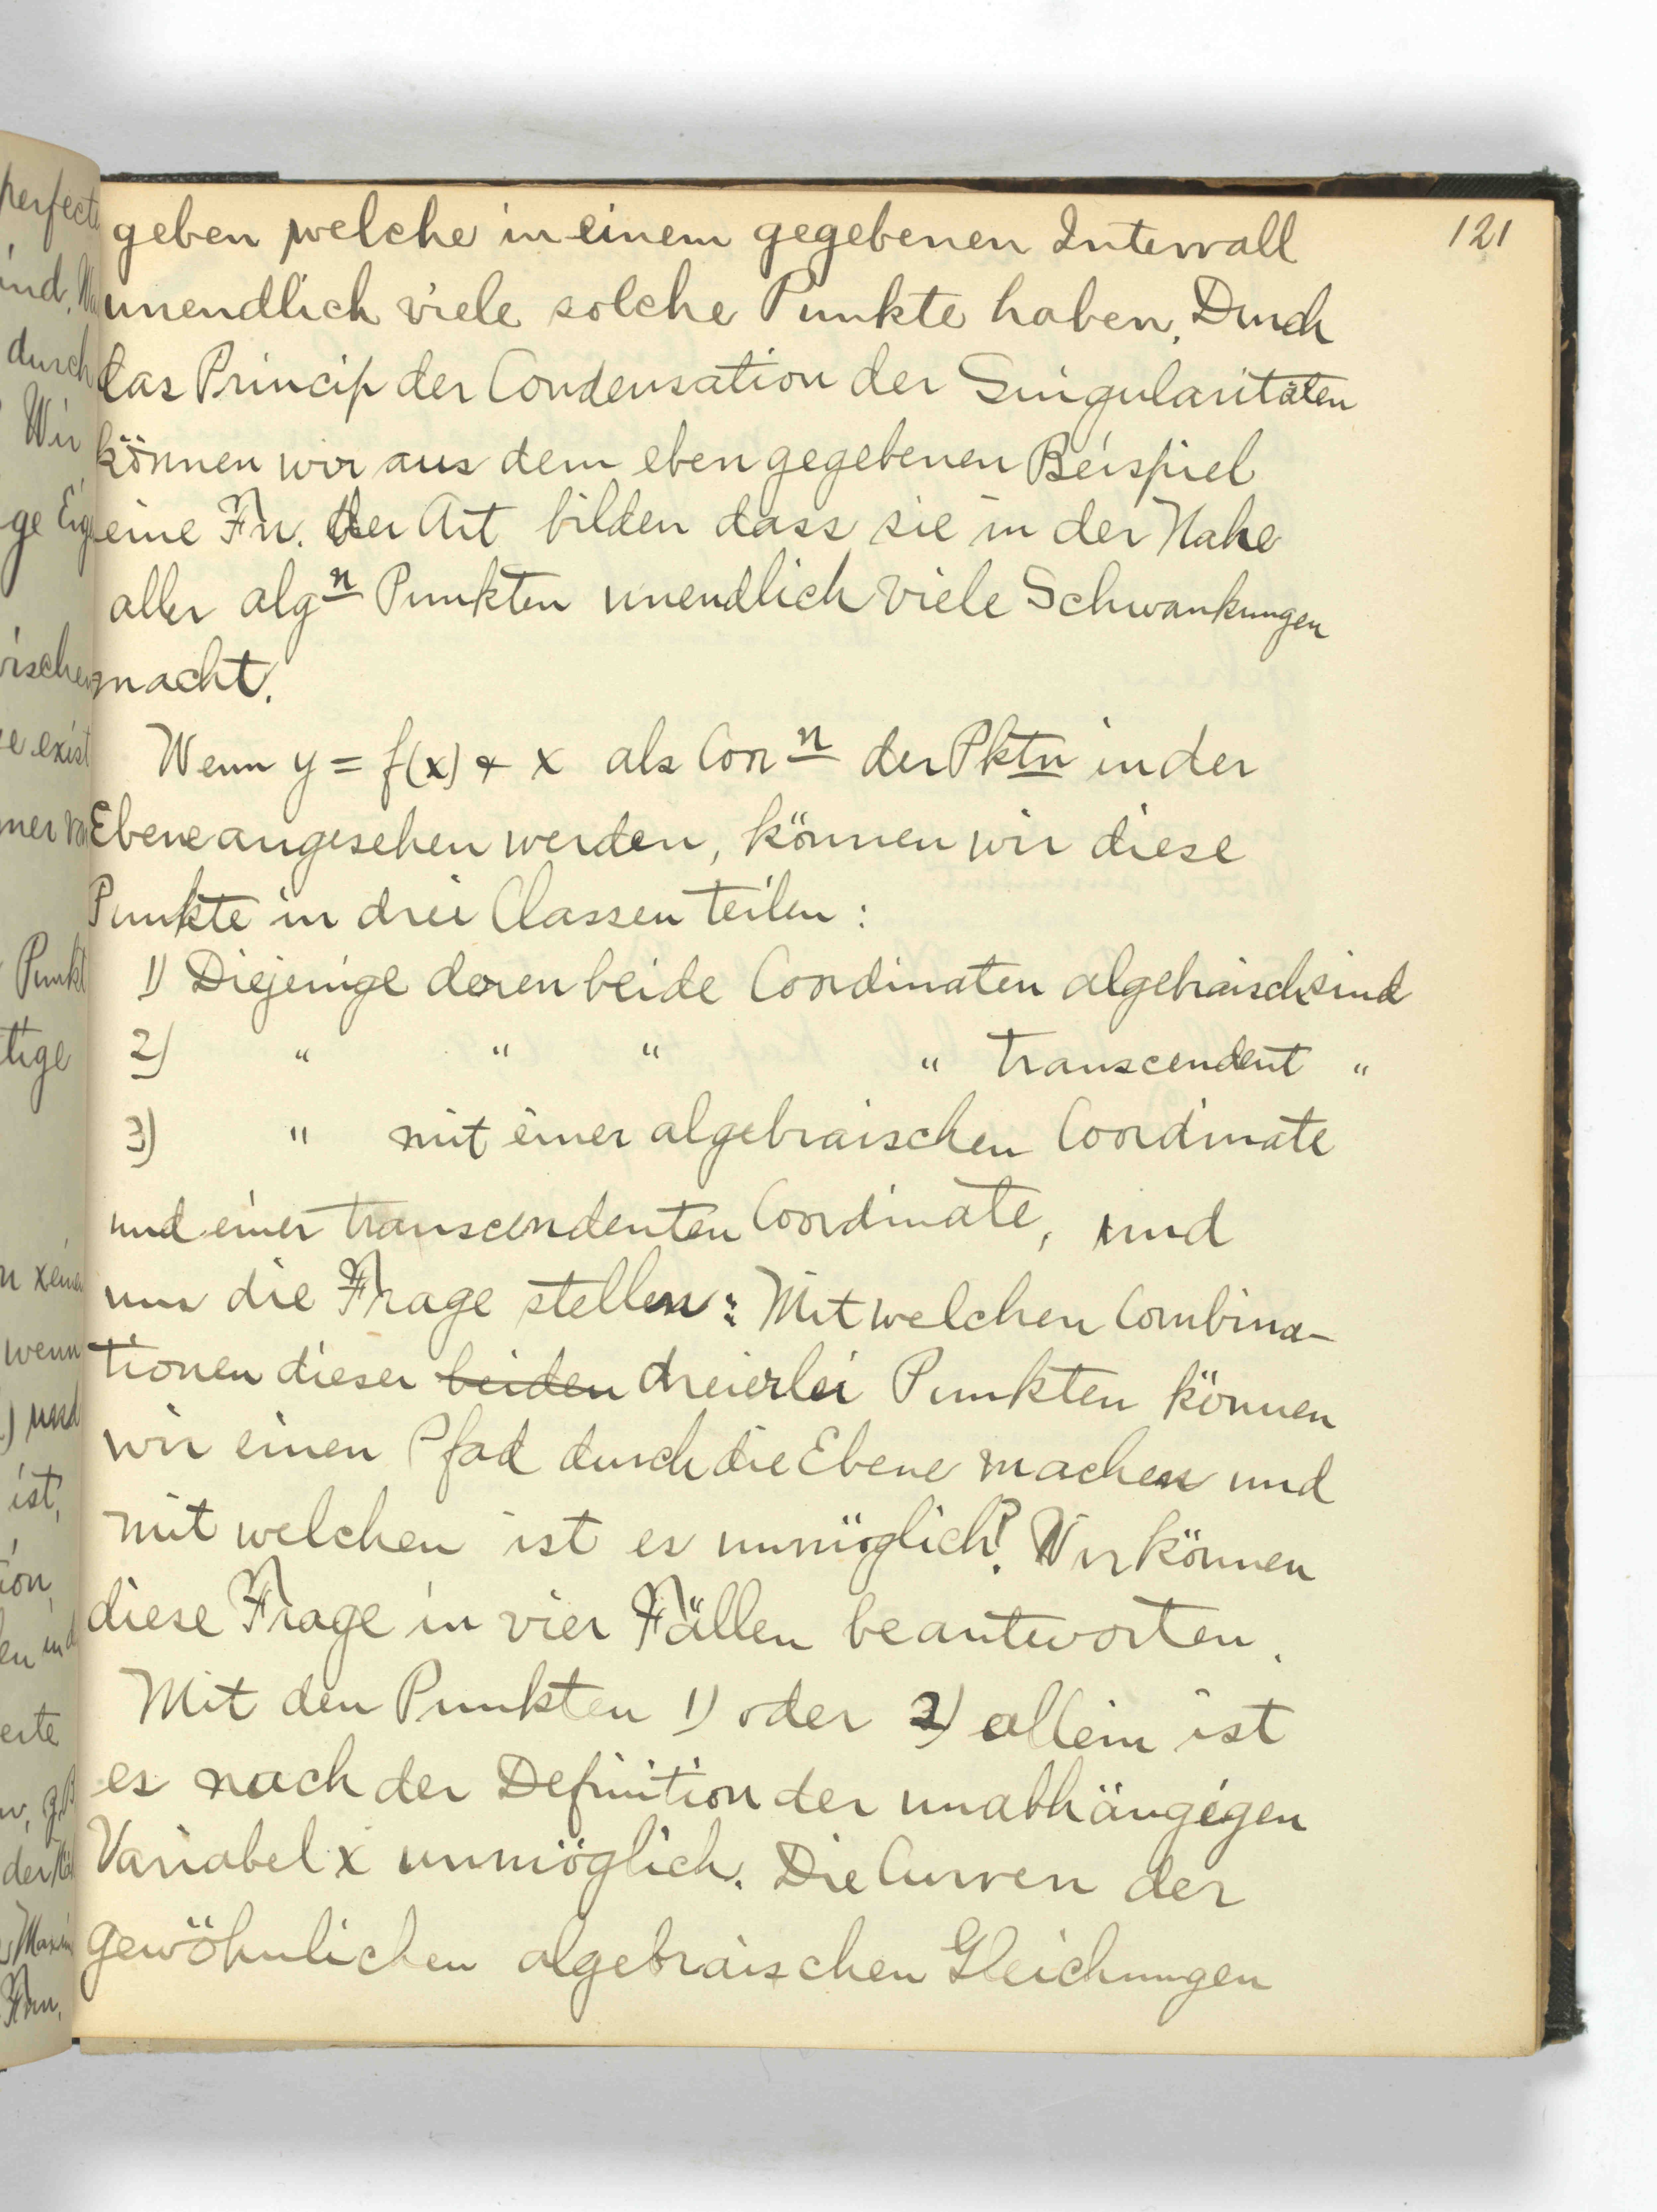 121
geben welche in einem gegebenen Intervall
unendlich viele solche Punkte haben. Durch
das Princip der Condensation der Singularitäten
können wir aus dem eben gegebenen Beispiel
eine Fn. der Art bilden dass sie in der Nahe
aller algn Punkten unendlich viele Schwankungen
macht.
Wenn y = f(x) & x als Corn der Pktn in der
Ebene angesehen werden, können wir diese
Punkte in drei Classen teilen:
1) Diejenige deren beide Coordinaten algebraisch sind
2) " " " " transcendent "
3) " mit einer algebraischen Coordinate
und einer transcendenten Coordinate, und
uns die Frage stellen: Mit welchen Combina-
tionen dieser beiden dreierlei Punkten können
wir einen Pfad durch die Ebene machen und
mit welchen ist es unmöglich? Wir können
diese Frage in vier Fällen beantworten.
Mit den Punkten 1) oder 2) allein ist
es nach der Definition der unabhängigen
Variabel x unmöglich. Die Curven der
gewöhnlichen algebraischen Gleichungen